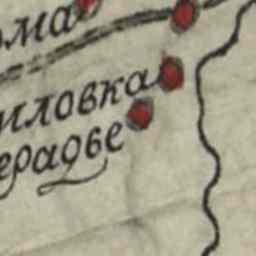 ома
иловка
ерадве